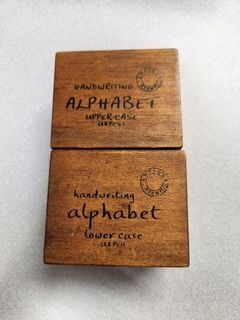 HANDWRITING
ALPHABET
UPPER CASE
(28 PCS)
handwriting
alphabet
lower case
(28 Pcs)